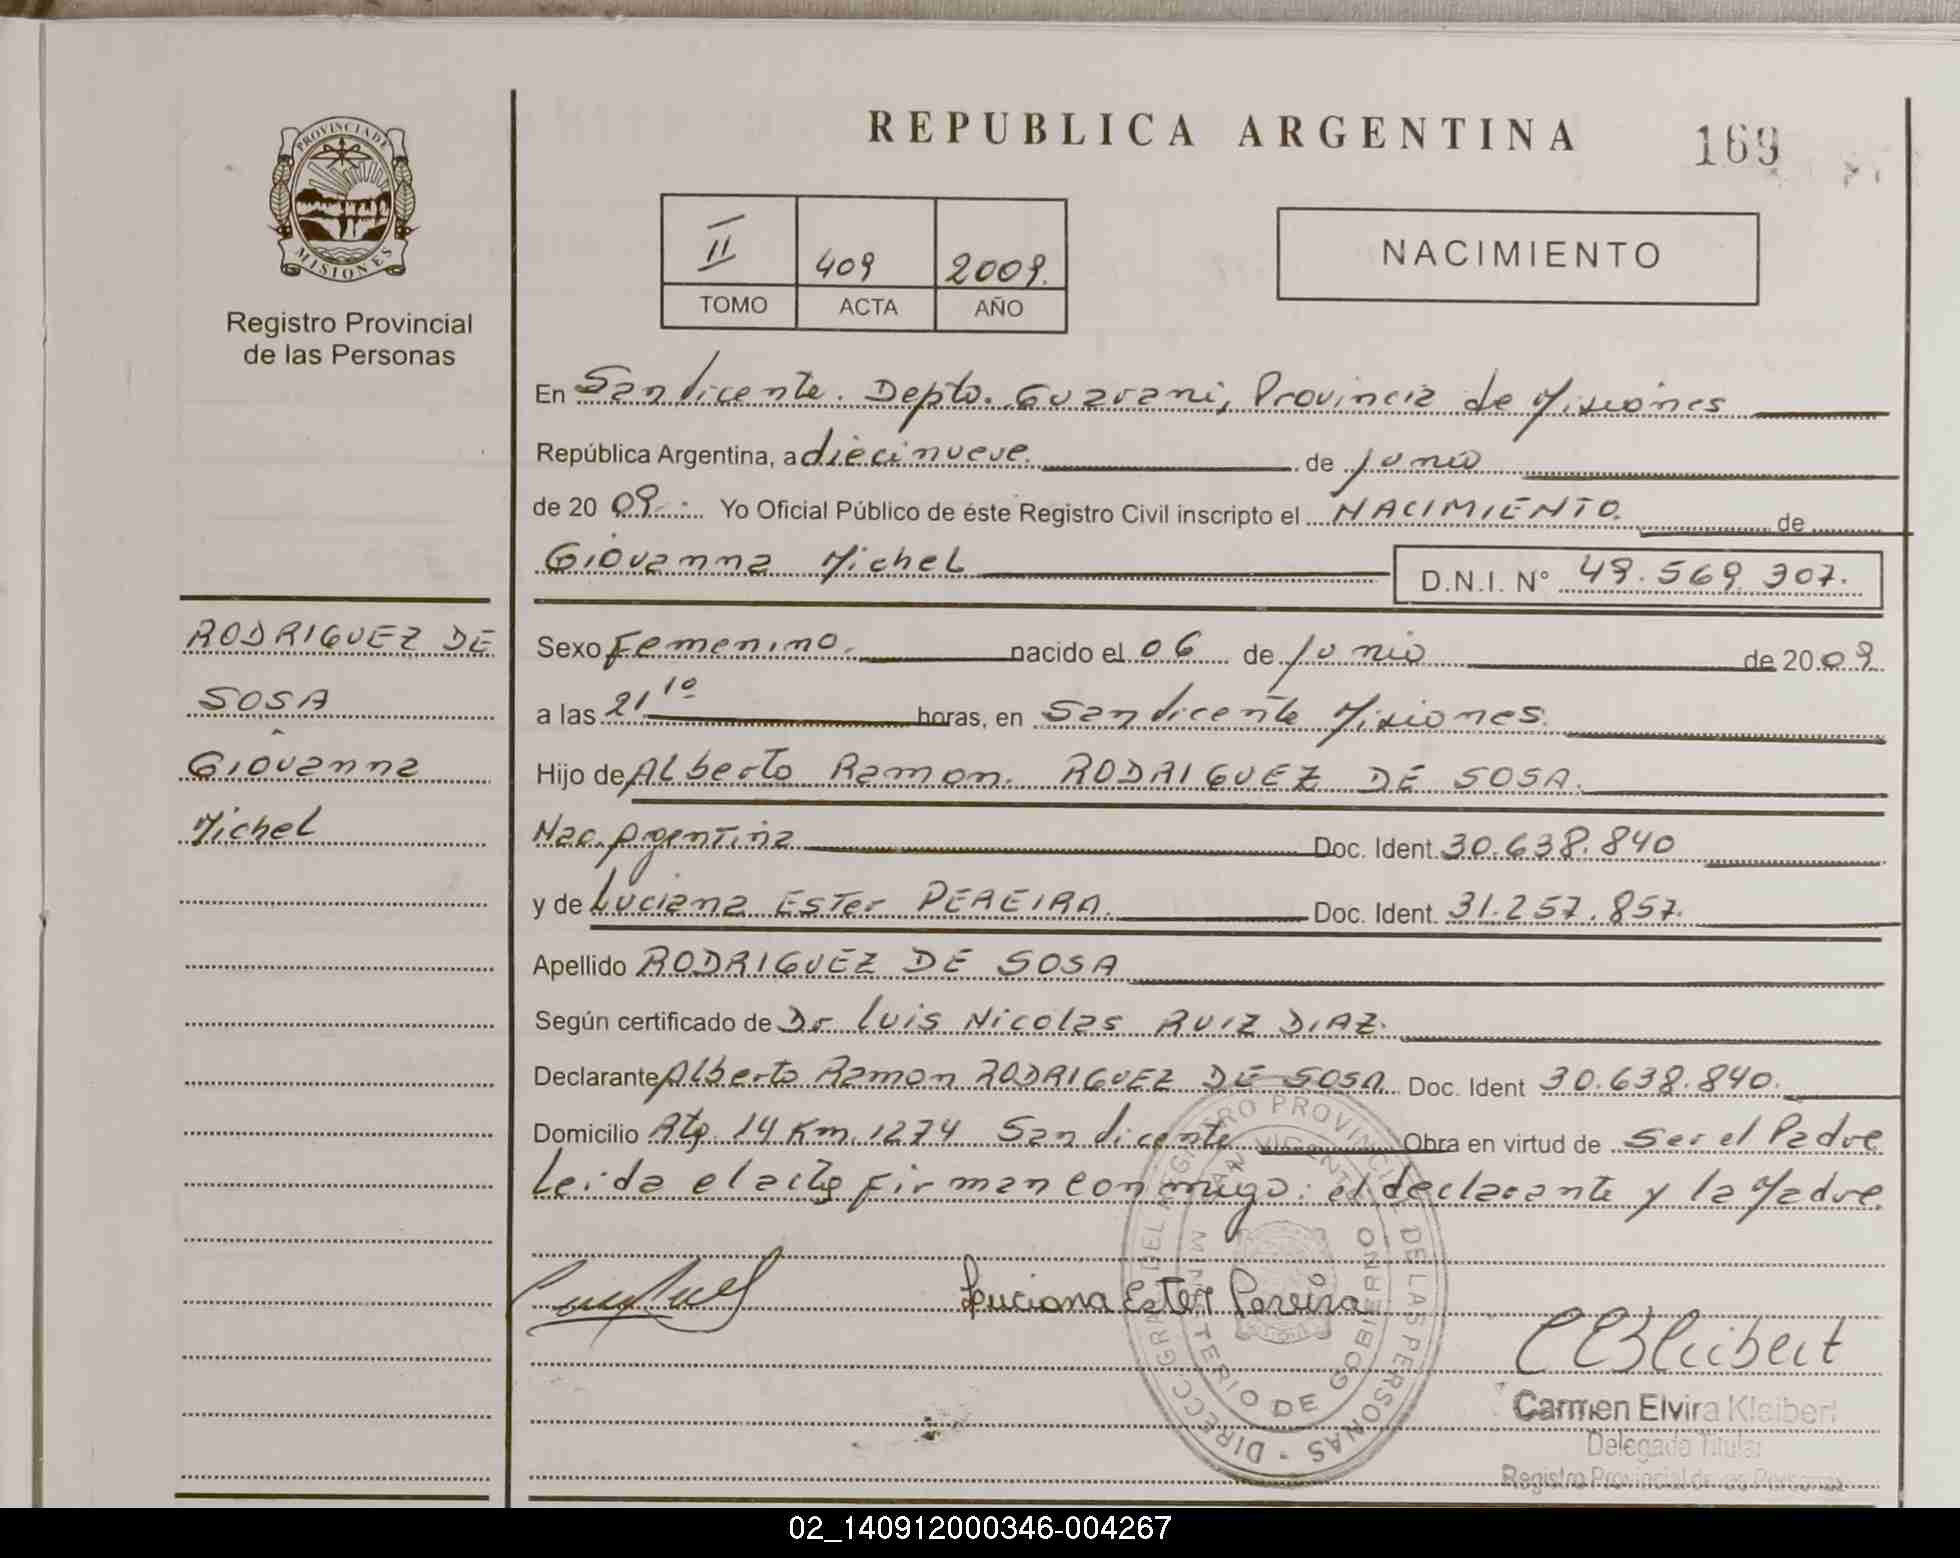 REPUBLICA ARGENTINA
169
PROVINCIA DE
MISIONES
Registro Provincial
de las Personas
II 409 2009.
TOMO ACTA AÑO
NACIMIENTO
En San Vicente. Depto. Guarani, Provincia de Misiones
República Argentina, a diecinueve. de junio
de 20 09. Yo Oficial Público de éste Registro Civil inscripto el NACIMIENTO. de
Giovanna Michel D.N.I. N° 49.569.307.
RODRIGUEZ DE
SOSA
Giovanna
Michel
Sexo Femenino. nacido el 06 de junio de 20 09
a las 21 10 horas, en San Vicente Misiones.
Hijo de Alberto Ramon. RODRIGUEZ DE SOSA.
Nac. Argentina Doc. Ident. 30.638.840
y de Luciana Ester PEREIRA. Doc. Ident. 31.257.857.
Apellido RODRIGUEZ DE SOSA
Según certificado de Dr Luis Nicolas RUIZ DIAZ.
Declarante Alberto Ramon RODRIGUEZ DE SOSA Doc. Ident 30.638.840.
Domicilio Rta 14 Km 1274 San Vicente Obra en virtud de Ser el Padre
Leida el acta firman conmigo: el declarante y la Madre.
Luciana Ester Pereira
DIRECC GRAL DEL REGISTRO PROVINCIAL DE LAS PERSONAS -
SAN VICENTE
MINISTERIO DE GOBIERNO
CEKleibert
Carmen Elvira Kleibert
Delegada Titular
Registro Provincial de las Personas
02_140912000346-004267